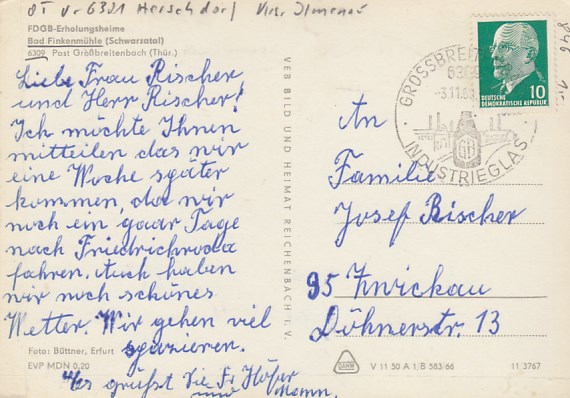 OT v. 6321 Herschdorf Kr. Ilmenau
FDGB-Erholungsheime
Bad Finkenmühle (Schwarzatal)
6309 Post Großbreitenbach (Thür.)
Liebe Frau Rischer
und Herr Rischer!
Ich möchte Ihnen
mitteilen das wir
eine Woche später
kommen, da wir
noch ein gaar Tage
nach Friedrichroda
fahren. Auch haben
wir noch schönes
Wetter. Wir gehen viel
spazieren.
Foto: Büttner, Erfurt
EVP MDN 0,20
Es grüßt Sie Fr Höfer
und Mann.
VEB BILD UND HEIMAT REICHENBACH I. V.
GROSSBREITENB
6309
-3.11.
GB
INDUSTRIEGLAS
10
DEUTSCHE
DEMOKRATISCHE REPUBLIK
846
An
Familie
Josef Rischer
95 Zwickau
Döhnerstr. 13
V 11 50 A 1/B 583/66
11 3767